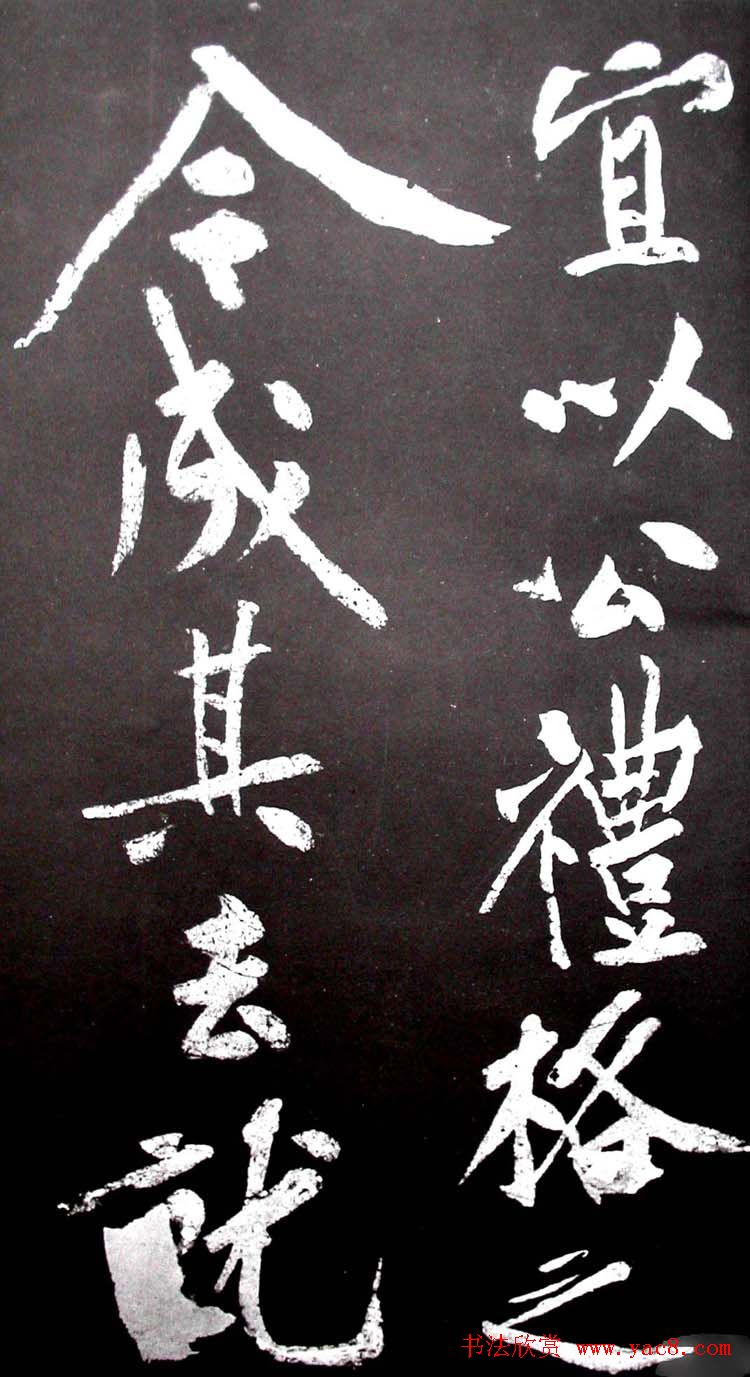 宜以公禮格之
令成其去就
书法欣赏 www.yac8.com